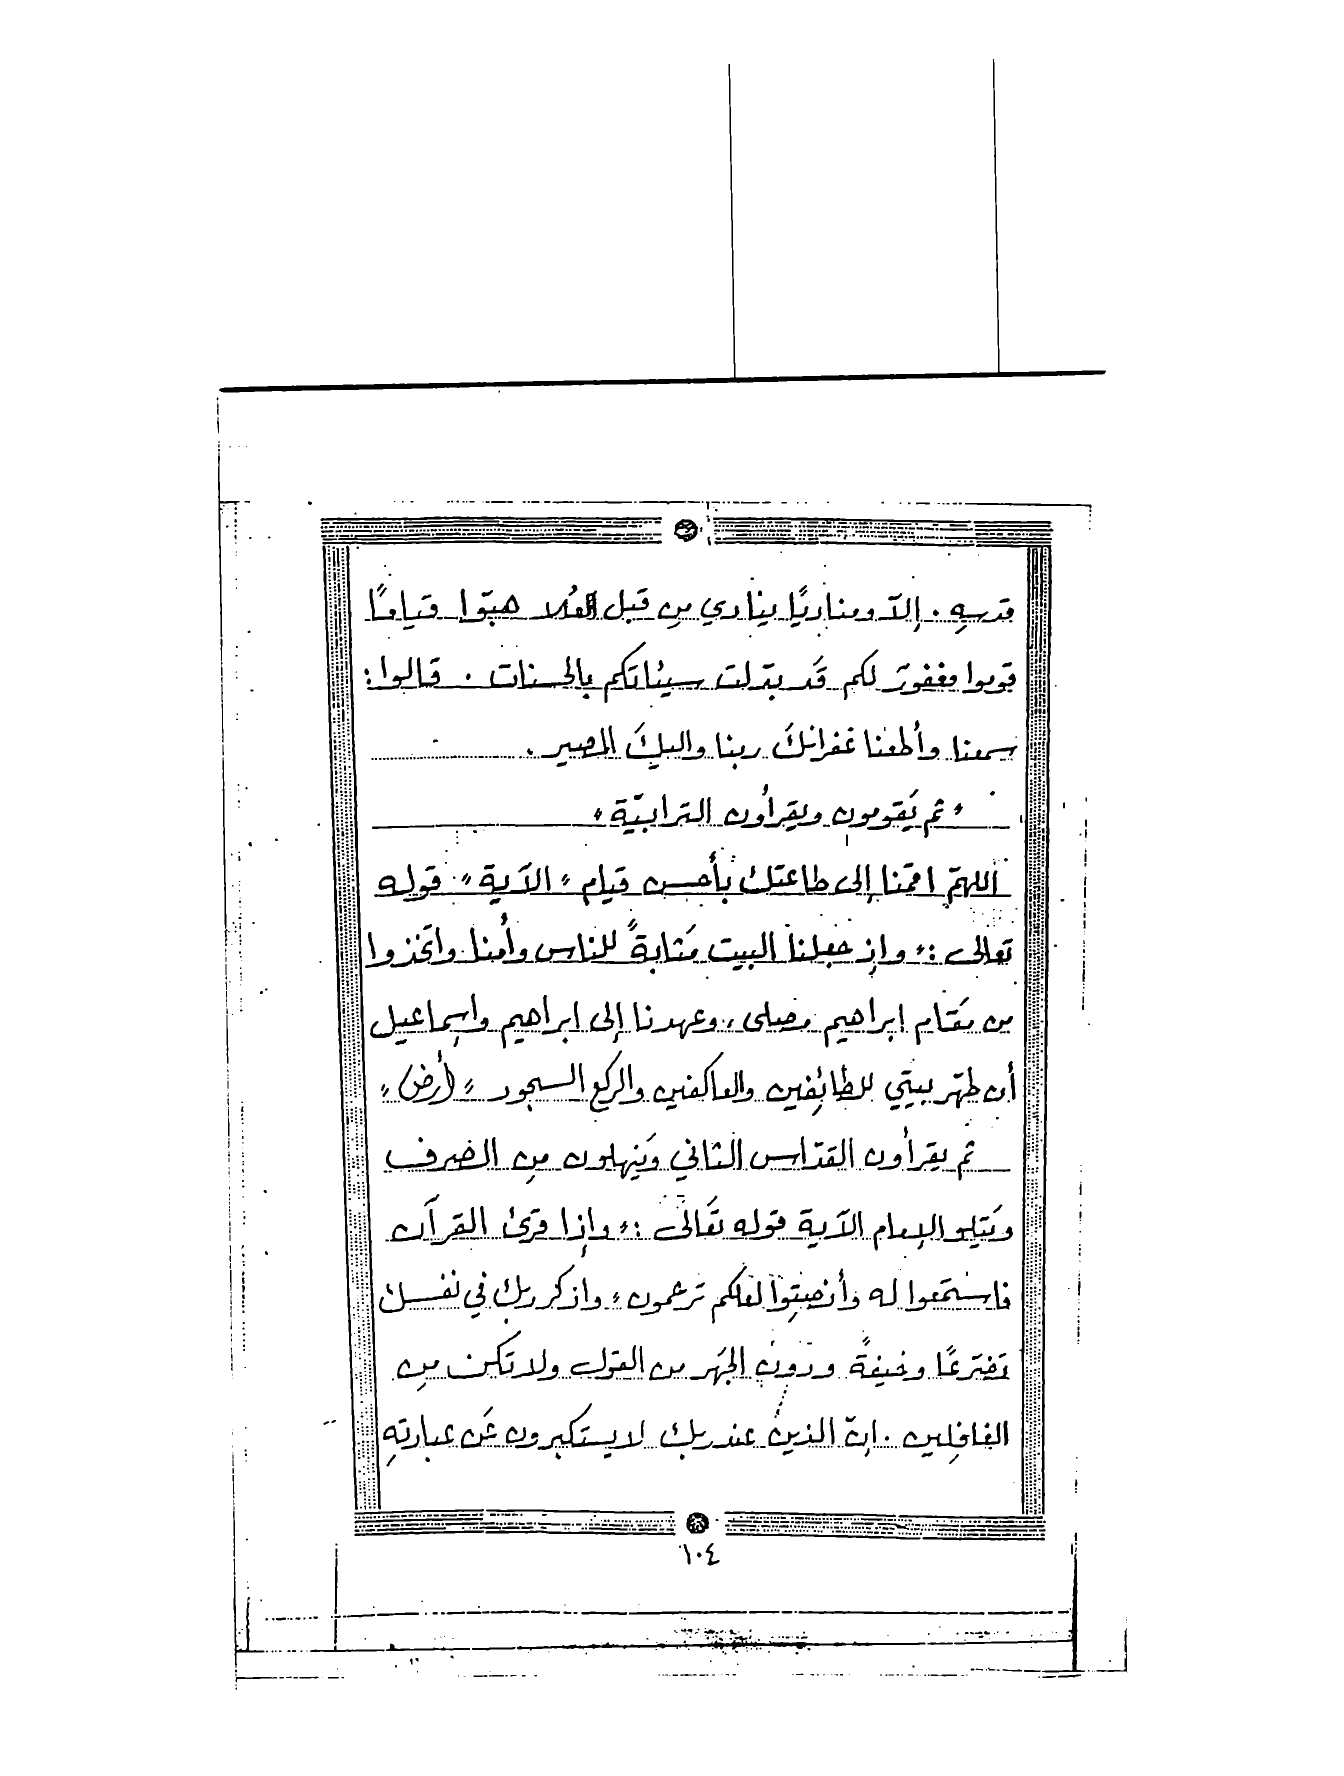 قدسِهِ . إلاّ ومناديًا ينادي مِن قبل العُلا هبّوا قيامًا
قوموا مغفورٌ لكم قَد بدّلت سيئاتكم بالحسنات . قالوا :
سمعنا وأطعنا غفرانكَ ربنا واليكَ المصير .
" ثم يَقومون ويقرأون الترابيّة "
اللهمّ اقمنا إلى طاعتك بأحسن قيام " الآية " قوله
تعالى : " واذ جعلنا البيت مَثابةً للناس وأمنا واتخذوا
من مَقام ابراهيم مصلى ، وعهدنا إلى ابراهيم واسماعيل
أن طهّر بيتي للطائفين والعاكفين والركع السجود " (أرض) "
ثم يقرأون القدّاس الثاني ويَنهلون مِن الصرف
ويَتلو الإمام الآية قوله تَعالى : " وإذا قرئ القرآن
فاستمَعوا له وأنصِتوا لعلكم ترحمون " واذكر ربك في نفسك
تضرّعًا وخيفةً ودون الجهَر من القول ولا تكن مِن
الغافِلين . إنّ الذين عند ربك لا يستكبرون عَن عبادتهِ
١٠٤